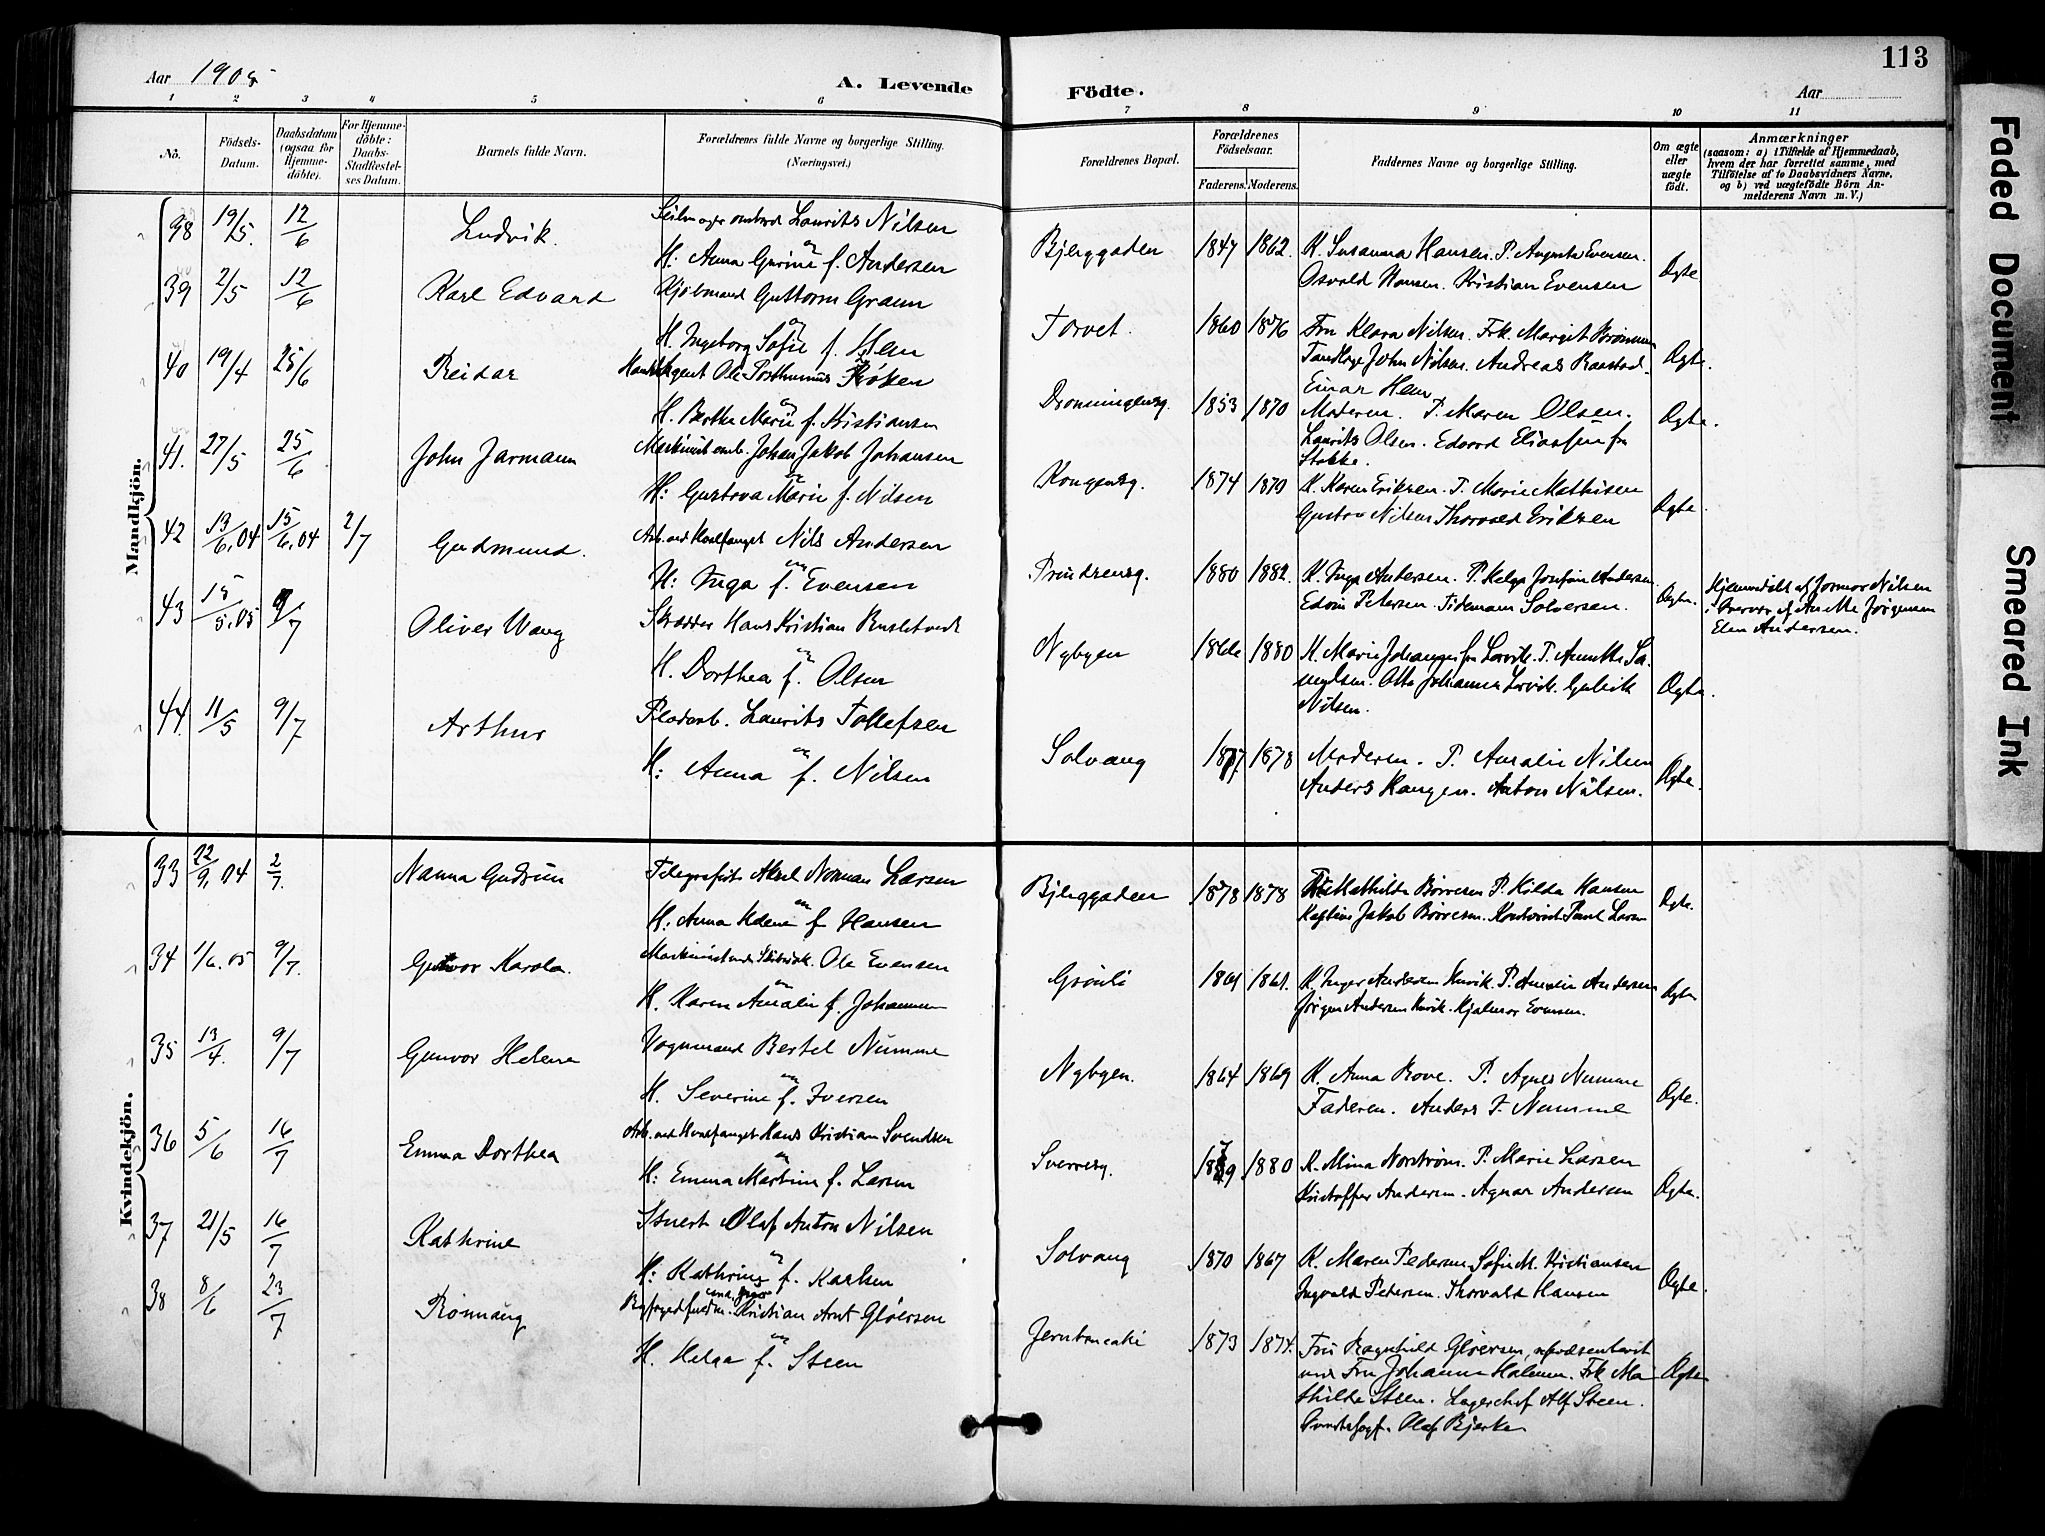 113
Aar 1905
A. Levende
Födte.
Aar
1 2 3 4 5 6 7 8 9 10 11
No.
Födsels-Datum.
Daabsdatum (ogsaa for Hjemme-döbte).
For Hjemme-döbte: Daabs-Stadfæstel-ses Datum.
Barnets fulde Navn.
Forældrenes fulde Navne og borgerlige Stilling. (Næringsvei.)
Forældrenes Bopæl.
Forældrenes Födselsaar.
Faderens. Moderens.
Faddernes Navne og borgerlige Stilling.
Om ægte eller uægte födt.
Anmærkninger
(saasom: a) i Tilfælde af Hjemmedaab,
hvem der har forrettet samme, med
Tilföielse af to Daabsvidners Navne,
og b) ved uægtefödte Börn An-
melderens Navn m. V.)
Mandkjön.
38 19/5. 12/6 Ludvik. Laurits Nilsen
H: Anna Gurine f. Andersen
Bjerggaden 1847 1862. K. Susanna Hansen. P. Augusta Evensen.
Osvald Hansen. Kristian Evensen Ægte
39 2/5 12/6 Karl Edvard Kjøbmand Guttorm Graun
H. Ingeborg Sofie f. Hem
Torvet. 1860 1876 Fru Klara Nilsen. Frk. Margit
Tandlæge John Nilsen. Andreas Raastad.
Einar Hem Ægte.
40 19/4 25/6 Reidar Ole Posthumus Røken
H. Berthe Marie f. Kristiansen
Dronningensg. 1853 1870 Moderen. P. Maren Olsen.
Laurits Olsen. Edvard Eliassen fra
Stokke. Ægte.
41. 27/5 25/6 John Jarmann Maskinist Johan Jakob Johansen
H: Gustava Marie f. Nilsen
Kongensg. 1874 1870 K. Karen Eriksen. P. Marie Mathisen
Gustav Nilsen Thorvald Eriksen Ægte
42 13/6.04 15/6.04 2/7 Gudmund. Arb. ved Hvalfanget Nils Andersen
H: Inga f. Evensen
Prindsensg. 1880 1882. K. Inga Andersen. P. Helga Josefine Andersen
Edvin Petersen. Tidemann Solversen. Ægte.
Hjemmedøbt af Jormor Nilsen
i Overvær af Anette Jørgensen
Elen Andersen.
43 15/5.05 9/7 Oliver Wang Skrædder Hans Kristian
H. Dorthea f. Olsen
Nybyen 1866 1880 K. Marie Johannesen fra Larvik. P. Annette Sa-
muelsen. Otto Johannesen Larvik. Gulvik
Nilsen. Ægte.
44. 11/5 9/7 Arthur Pladearb. Laurits Tollefsen
H: Anna f. Nilsen
Solvang 1877. 1878 Moderen. P. Amalie Nilsen
Anders Haugen. Anton Nilsen. Ægte.
Kvindekjön.
33 22/9.04 2/7. Nanna Gudrun Telegrafist Aksel Norman Larsen
H: Anna Helene f. Hansen
Bjerggaden 1878 1878 Mathilde Børresen P. Hilda Hansen
Kaptein Jakob Børresen. Kontorist Paul Larsen Ægte.
34 1/6.05 9/7. Gunvor Karola. Maskinist Ole Evensen
H. Karen Amalie f. Johannsen
Grønli 1861 1861. K. Inger Andersen P. Amalie Andersen
Jørgen Andersen Hjalmar Evensen. Ægte
35 13/4. 9/7 Gunvor Helene Vognmand Bertel Numme
H. Severine f. Iversen
Nybyen. 1864 1869 K. Anna Rove. P. Agnes Numme
Faderen. Anders J. Numme Ægte.
36 5/6 16/7 Emma Dorthea Arb. ved Hvalfanget Hans Kristian Svendsen
H: Emma Martine f. Larsen
Sverresg. 1879 1880 K. Mina Norstrøm. P. Marie Larsen
Kristoffer Andersen. Agnar Andersen Ægte.
37 21/5 16/7 Kathrine Stuert Olaf Anton Nilsen
H: Kathrine f. Karlsen
Solvang 1870 1867 K. Maren Pedersen. Sofie M. Kristiansen
Ingvald Petersen. Thorvald Hansen Ægte.
38 8/6 23/7 Rønnaug Kristian Arnt Gløersen
H. Helga f. Steen
1873 1874. Fru Ragnhild Gløersen, repræsenteret
ved Fru Johanne Halvorsen. Frk Ma-
thilde Steen. Lagerchef Alf Steen.
Olaf Bjerke Ægte
Faded Document
Smeared Ink